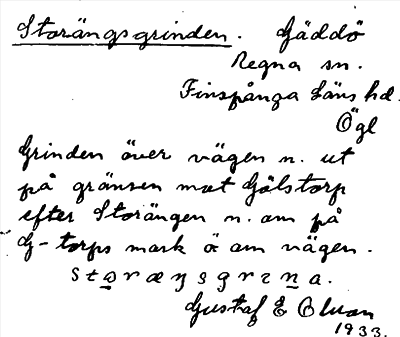 Storängsgrinden. Gäddö
Regna sn.
Finspånga läns hd.
Ögl
Grinden över vägen n. ut
på gränsen mot Gölstorp
efter Storängen n. om på
G-torps mark ö om vägen.
storæŋsgrına.
Gustaf E Oluan
1933.